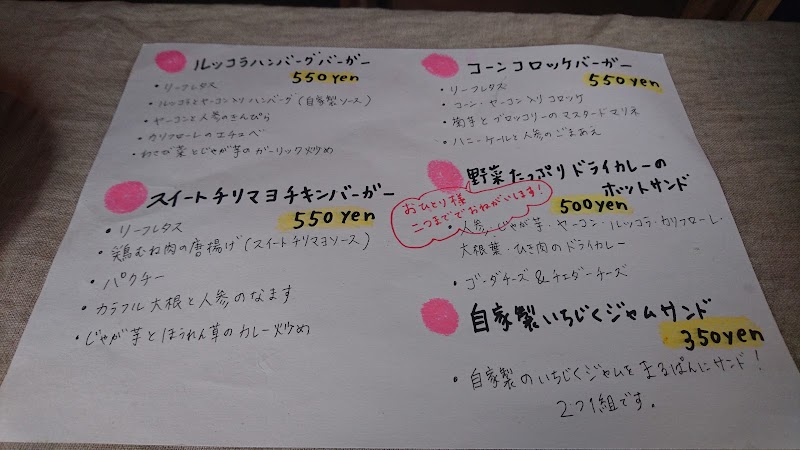 ルッコラハンバーグバーガー
550yen
・リーフレタス
・ルッコラとヤーコン入りハンバーグ(自家製ソース)
・ヤーコンと人参のきんぴら
・カリフローレのエチュベ
・わさび菜とじゃが芋のガーリック炒め
スイートチリマヨチキンバーガー
550yen
・リーフレタス
・鶏むね肉の唐揚げ(スイートチリマヨソース)
・パクチー
・カラフル大根と人参のなます
・じゃが芋とほうれん草のカレー炒め
コーンコロッケバーガー
550yen
・リーフレタス
・コーン・ヤーコン入りコロッケ
・菊芋とブロッコリーのマスタードマリネ
・ハニーケールと人参のごまあえ
野菜たっぷりドライカレーの
ホットサンド
500yen
おひとり様
二つまででおねがいします!
・人参・じゃが芋・ヤーコン・ルッコラ・カリフローレ・
大根葉・ひき肉のドライカレー
・ゴーダチーズ&チェダーチーズ
自家製いちじくジャムサンド
350yen
・自家製のいちじくジャムをまるぱんにサンド!
2つ1組です。